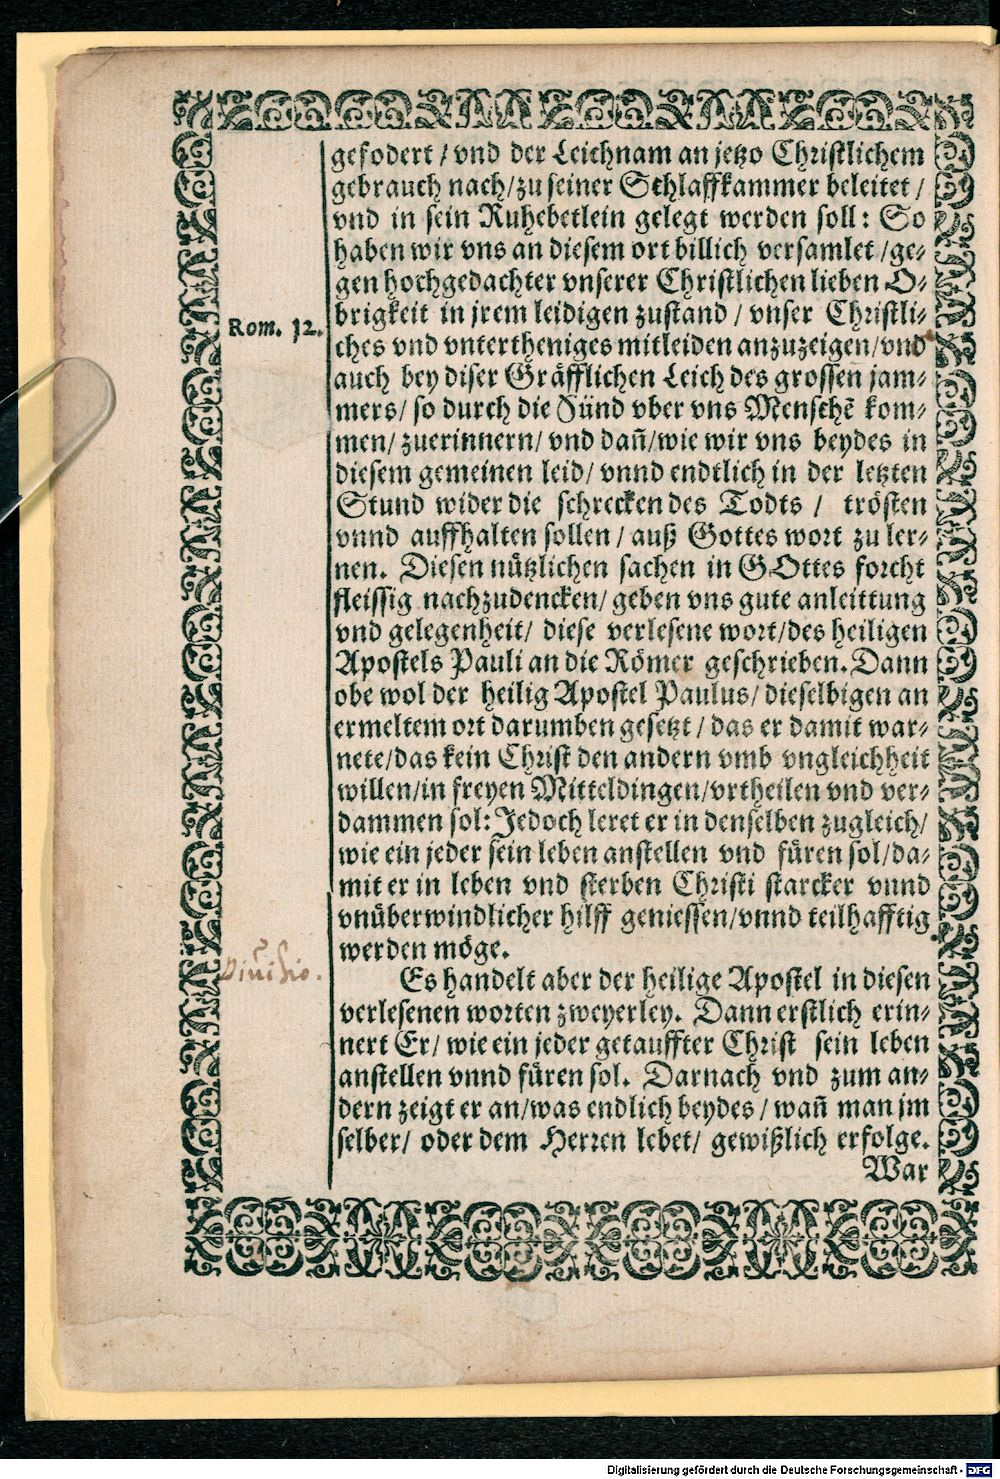 gefodert / vnd der Leichnam an jetzo Christlichem
gebrauch nach/zu seiner Schlaffkammer beleitet /
vnd in sein Ruhebetlein gelegt werden soll: So
haben wir vns an diesem ort billich versamlet /ge-
gen hochgedachter vnserer Christlichen lieben O-
brigkeit in jrem leidigen zustand / vnser Christli-
Rom. 12.
ches vnd vntertheniges mitleiden anzuzeigen/vnd
auch bey diser Gräfflichen Leich des grossen jam-
mers/ so durch die Sünd vber vns Menschẽ kom-
men/ zuerinnern/ vnd dañ/wie wir vns beydes in
diesem gemeinen leid/ vnnd endtlich in der letzten
Stund wider die schrecken des Todts / trösten
vnnd auffhalten sollen / auß Gottes wort zu ler-
nen. Diesen nützlichen sachen in GOttes forcht
fleissig nachzudencken/ geben vns gute anleittung
vnd gelegenheit/ diese verlesene wort/des heiligen
Apostels Pauli an die Römer geschrieben. Dann
obe wol der heilig Apostel Paulus/ dieselbigen an
ermeltem ort darumben gesetzt / das er damit war-
nete/das kein Christ den andern vmb vngleichheit
willen/in freyen Mitteldingen/vrtheilen vnd ver-
dammen sol: Jedoch leret er in denselben zugleich/
wie ein jeder sein leben anstellen vnd füren sol/da-
mit er in leben vnd sterben Christi starcker vnnd
vnüberwindlicher hilff geniessen/vnnd teilhafftig
werden möge.
Diuisio.
Es handelt aber der heilige Apostel in diesen
verlesenen worten zweyerley. Dann erstlich erin-
nert Er/ wie ein jeder getauffter Christ sein leben
anstellen vnnd füren sol. Darnach vnd zum an-
dern zeigt er an/was endlich beydes / wañ man jm
selber/ oder dem Herren lebet/ gewißlich erfolge.
War
Digitalisierung gefördert durch die Deutsche Forschungsgemeinschaft - DFG